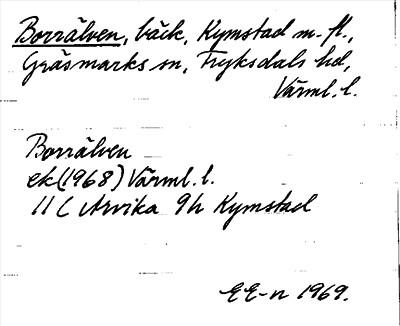 Borrälven, bäck, Kymstad m. fl.,
Gräsmarks sn, Fryksdals hd,
Värml. l.
Borrälven
ek (1968) Värml. l.
11 C Arvika 9h Kymstad
EE-n 1969.